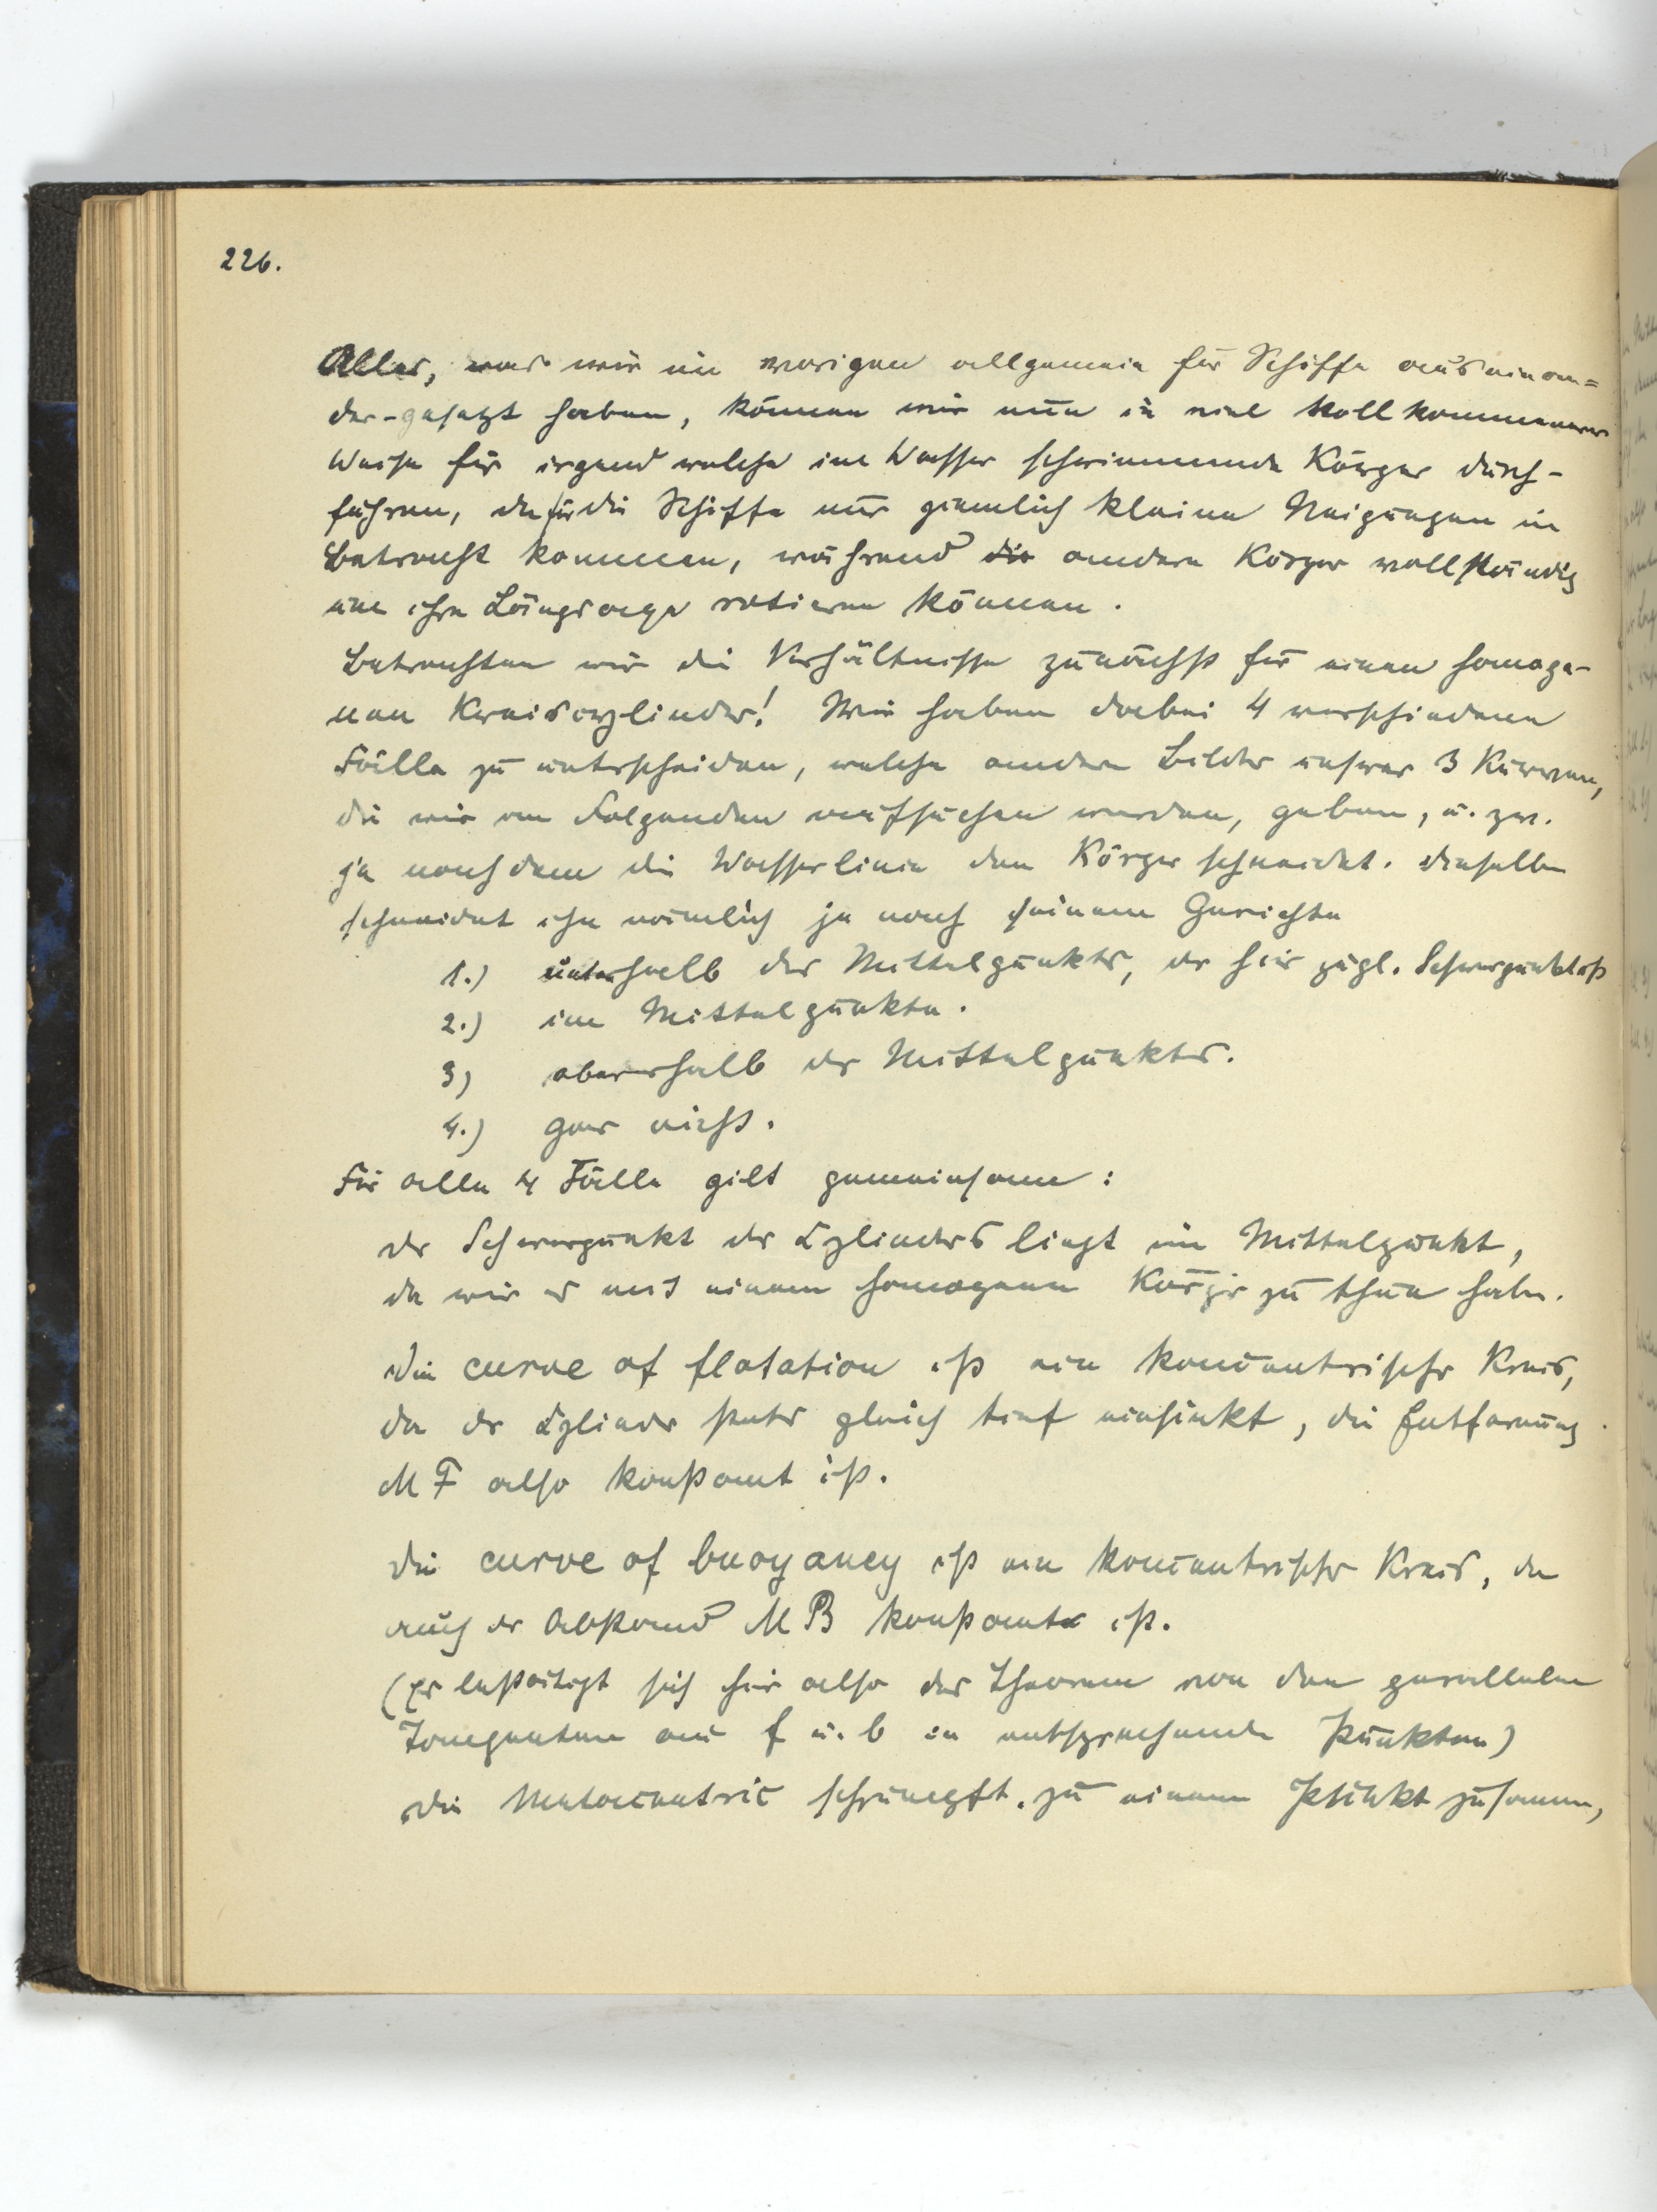 226.
Alles, was wir im vorigen allgemein für Schiffe auseinan=
der-gesetzt haben, können wir nun in viel vollkommenerer
Weise für irgend welche im Wasser schwimmende Körper durch-
führen, da für die Schiffe nur ziemlich kleine Neigungen in
Betracht kommen, während die andere Körper vollständig
um ihre Längsaxe rotieren können.
Betrachten wir die Verhältnisse zunächst für einen homoge-
nen Kreiscylinder! Wir haben dabei 4 verschiedene
Fälle zu unterscheiden, welche andere Bilder unserer 3 Kurven,
die wir im Folgenden aufsuchen werden, geben, u. zw.
je nachdem die Wasserlinie den Körper schneidet. Dieselbe
schneidet ihn nämlich je nach seinem Gewichte
1.) unterhalb des Mittelpunktes, der hier zugl. Schwerpunkt ist
2.) im Mittelpunkte.
3) oberhalb des Mittelpunktes.
4.) gar nicht.
Für alle 4 Fälle gilt gemeinsam:
der Schwerpunkt des Cylinders liegt im Mittelpunkt,
da wir es mit einem homogenen Körper zu thun haben.
Die curve of flotation ist ein koncentrischer Kreis,
da der Cylinder stets gleich tief einsinkt, die Entfernung
M F also konstant ist.
Die curve of buoyancy ist ein koncentrischer Kreis, da
auch der Abstand M B konstant ist.
(Es bestätigt sich hier also das Theorem von den parallelen
Tangenten an f u. b in entsprechenden Punkten)
Die Metacentric schrumpft zu einem Punkt zusammen,